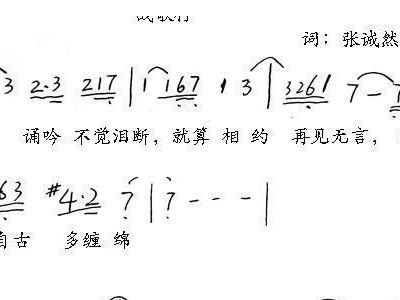 词：张诚然
3 2·3 217 | 1 167 1 3 | 3261 7 –
诵吟 不觉泪断，就算 相 约 再见无言，
63 #4·2 7 | 7 - - - |
自古 多缠 绵